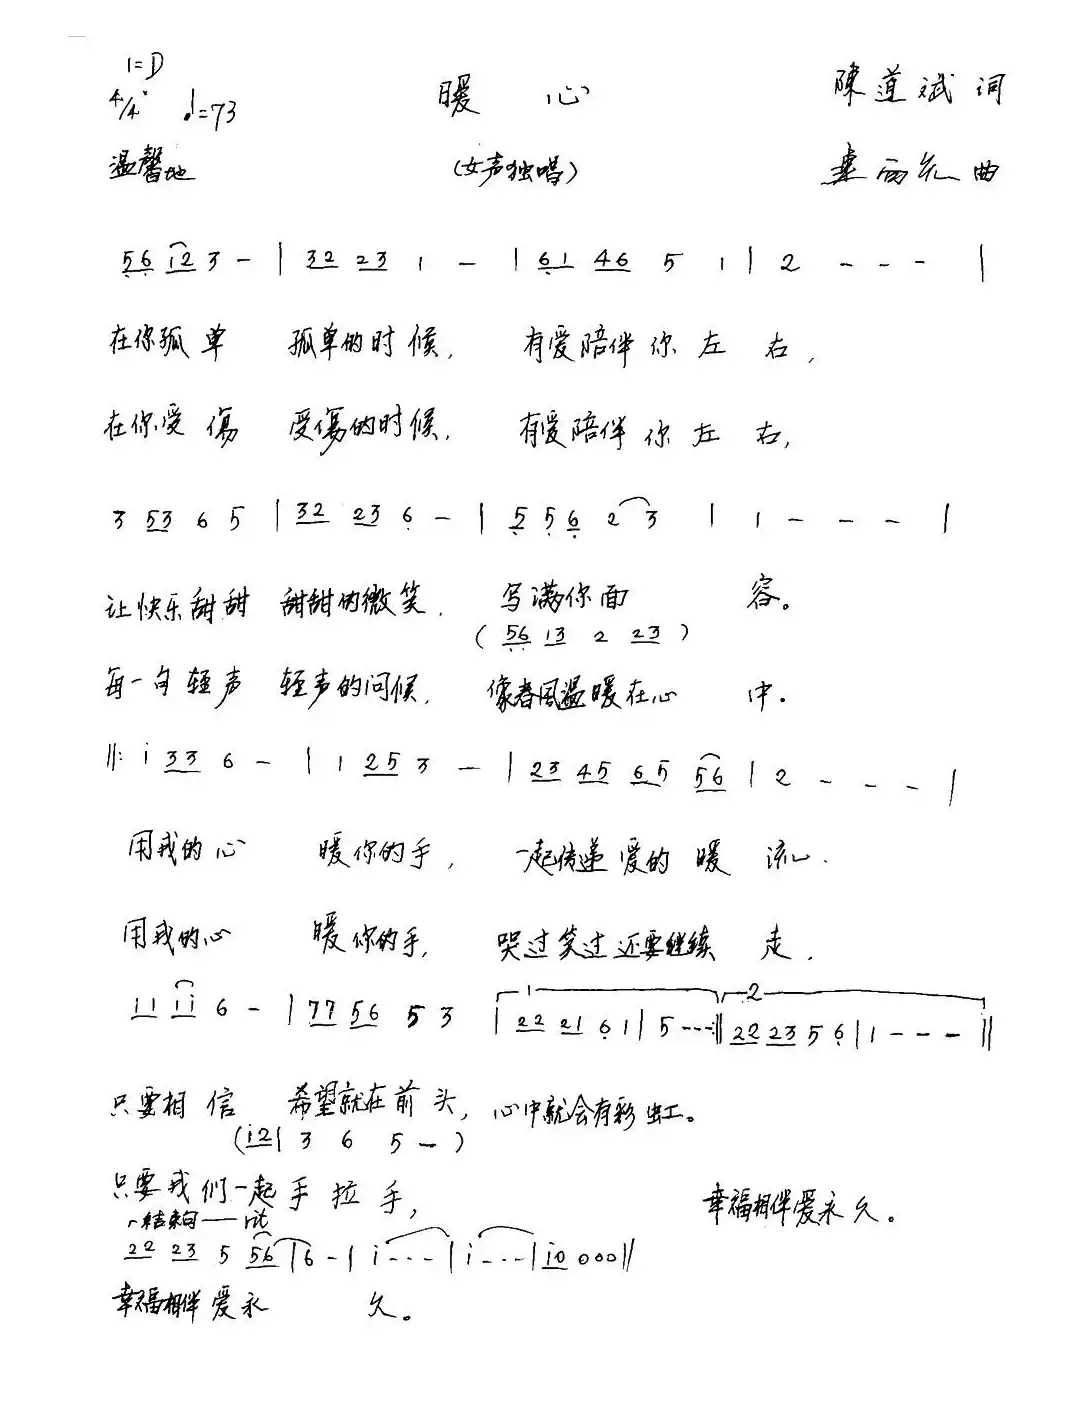 1=D
4/4 ♩=73 暖 心 陳道斌 词
温馨地 (女声独唱) 雨 曲
56 i2 3 - | 32 23 1 - | 61 46 5 1 | 2 - - - |
在你孤单 孤单的时候, 有爱陪伴你左右,
在你受傷 受傷的时候, 有爱陪伴你左右,
3 53 6 5 | 32 23 6 - | 5 5 6 2 3 | 1 - - - |
让快乐甜甜 甜甜的微笑, 写满你面 容。
(56 13 2 23)
每一句轻声 轻声的问候, 像春风温暖在心 中.
‖: i 33 6 - | 1 25 3 - | 23 45 65 56 | 2 - - - |
用我的心 暖你的手, 一起传递爱的暖流.
用我的心 暖你的手, 哭过笑过还要继续走.
11 1i 6 - | 77 56 5 3 | 1 22 21 6 1 | 5 - - - :‖ 2 22 23 5 6 | 1 - - - ‖
只要相信 希望就在前头, 心中就会有彩虹。
(i2 | 3 6 5 - )
只要我们一起手拉手, 幸福相伴爱永久。
结束句 —— rit
22 23 5 56 | 6 - | i - - - | i - - - | i0 0 0 0 ‖
幸福相伴爱永 久。